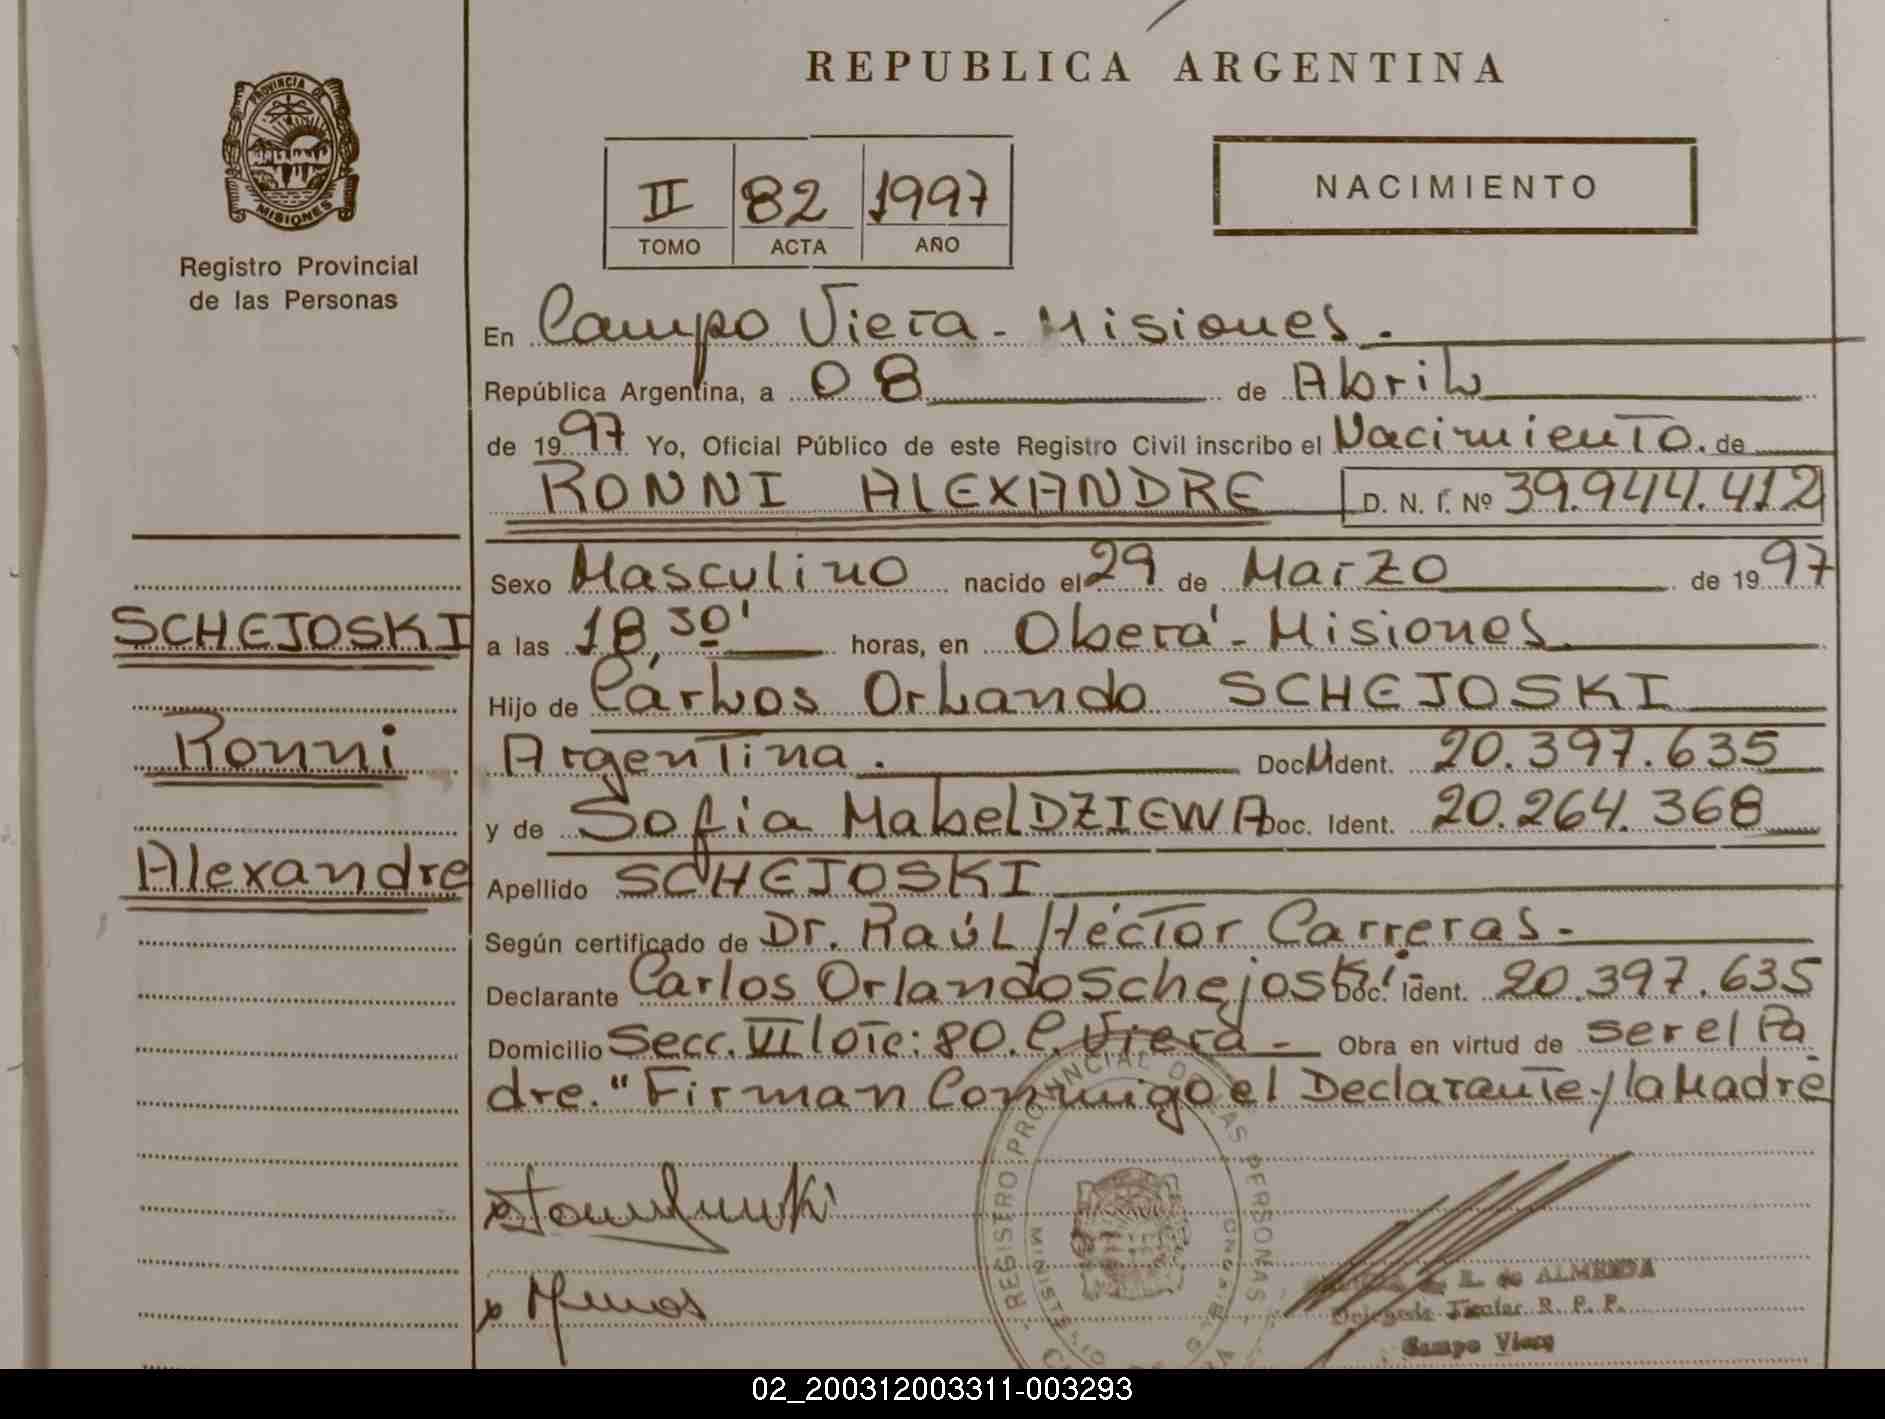 REPUBLICA ARGENTINA
PROVINCIA DE
MISIONES
Registro Provincial
de las Personas
II 82 1997
TOMO ACTA AÑO
NACIMIENTO
En Campo Viera - Misiones.
República Argentina, a 08 de Abril
de 1997 Yo, Oficial Público de este Registro Civil inscribo el Nacimiento. de
RONNI ALEXANDRE D. N. I. Nº 39.944.412
Sexo Masculino nacido el 29 de Marzo de 1997
SCHEJOSKI
a las 18,30' horas, en Oberá - Misiones
Hijo de Carlos Orlando SCHEJOSKI
Ronni
Argentina. Doc. Ident. 20.397.635
y de Sofia Mabel DZIEWA Doc. Ident. 20.264.368
Alexandre
Apellido SCHEJOSKI
Según certificado de Dr. Raúl Héctor Carreras.-
Declarante Carlos Orlando Schejoski.- Doc. Ident. 20.397.635
Domicilio Secc. VI lote: 80. C. Viera - Obra en virtud de ser el Pa
dre." Firman Conmigo el Declarante y la Madre
REGISTRO PROVINCIAL DE LAS PERSONAS
E. de ALMEIDA
Delegada Titular R. P. P.
Campo Viera
02_200312003311-003293